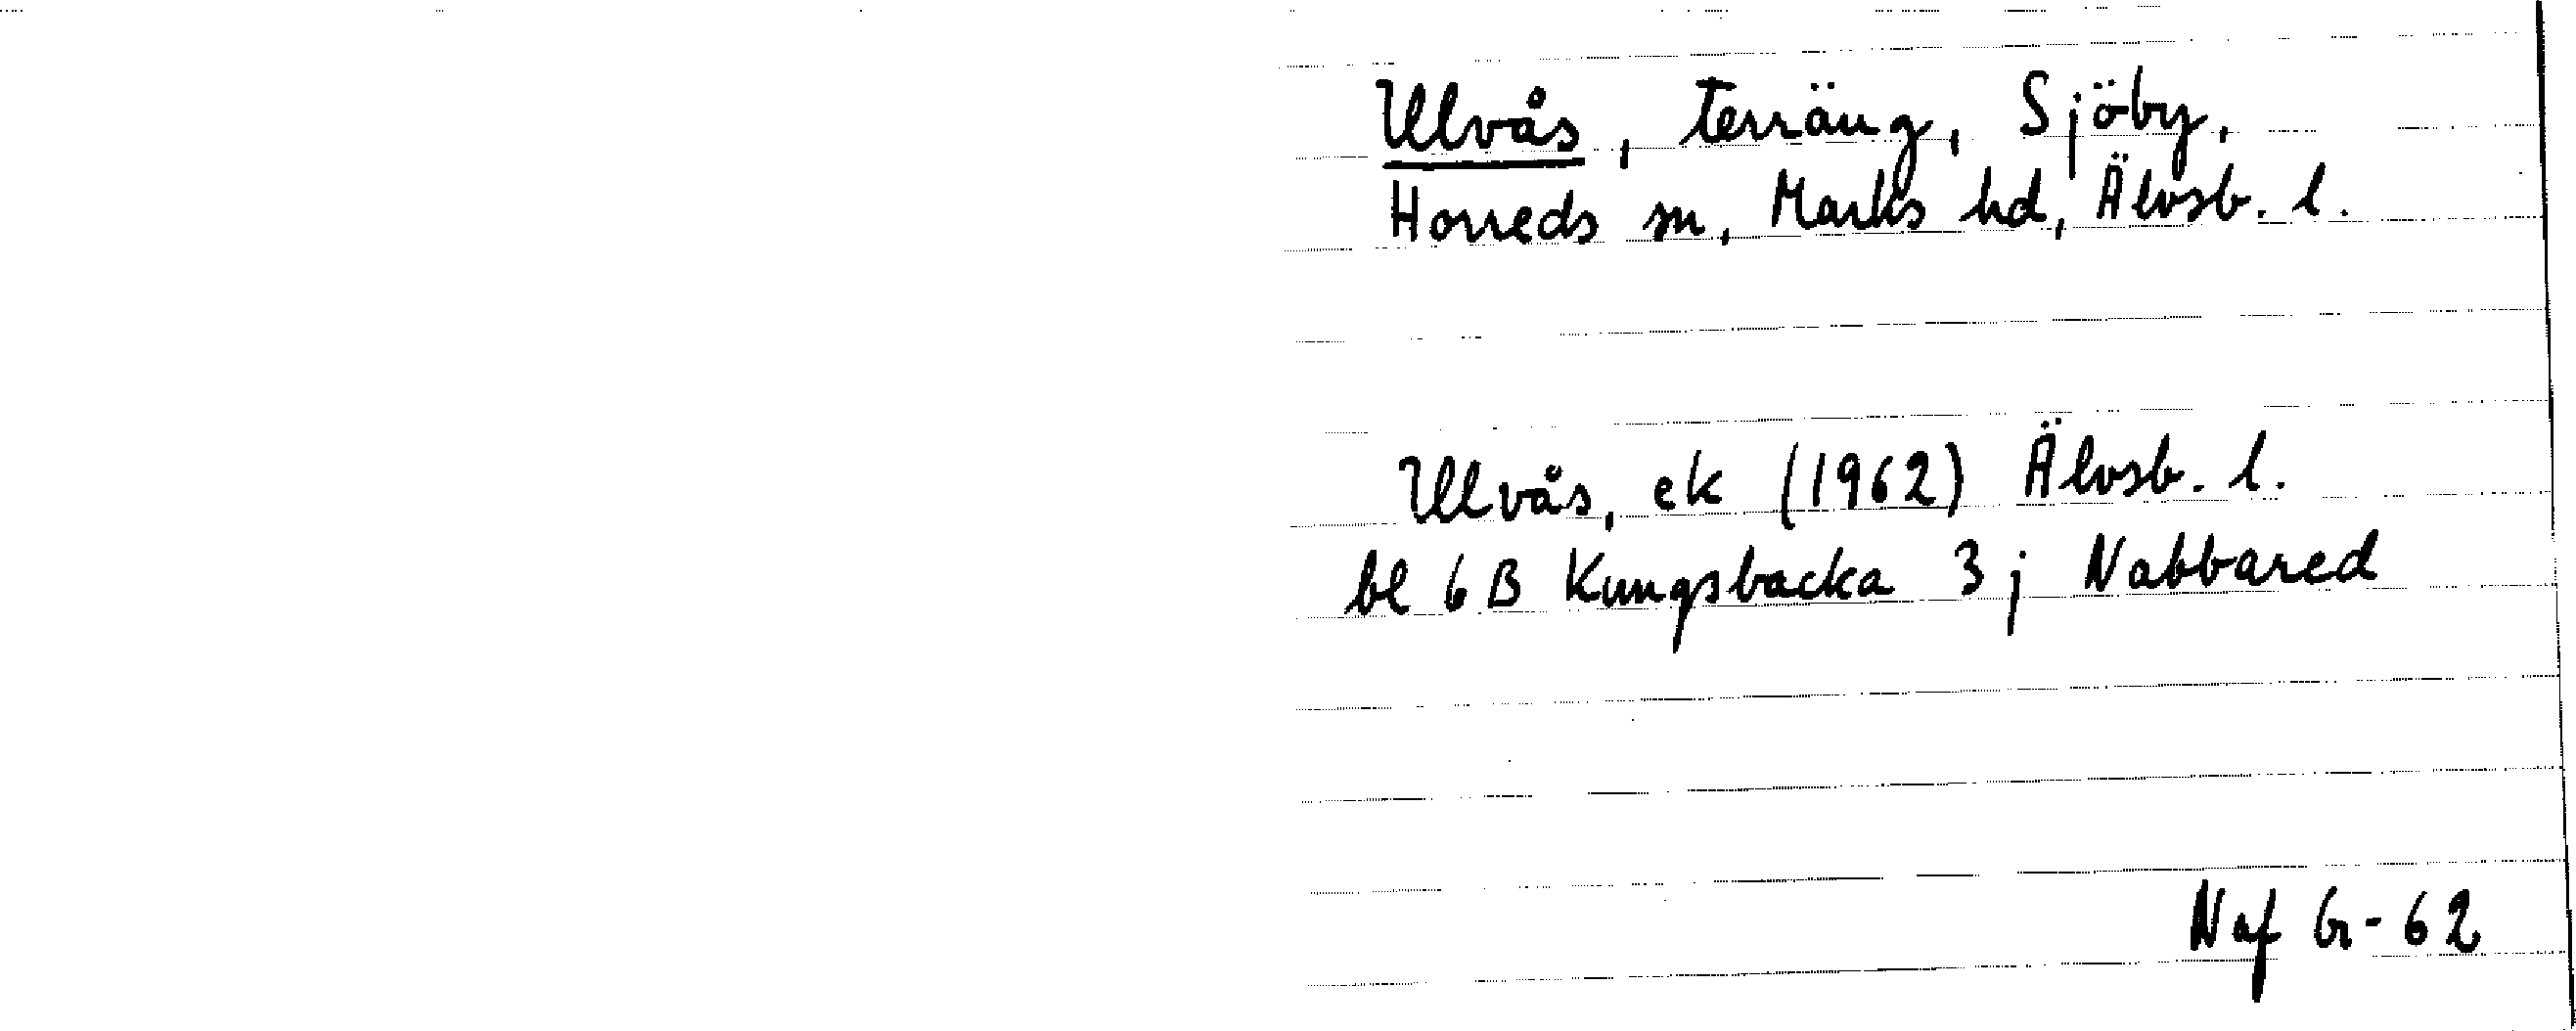 Ulvås, terräng, Sjöby,
Horreds sn, Marks hd, Älvsb. l.
Ulvås, ek (1962) Älvsb. l.
bl 6 B Kungsbacka 3 j Nabbared
Naf Gr-62